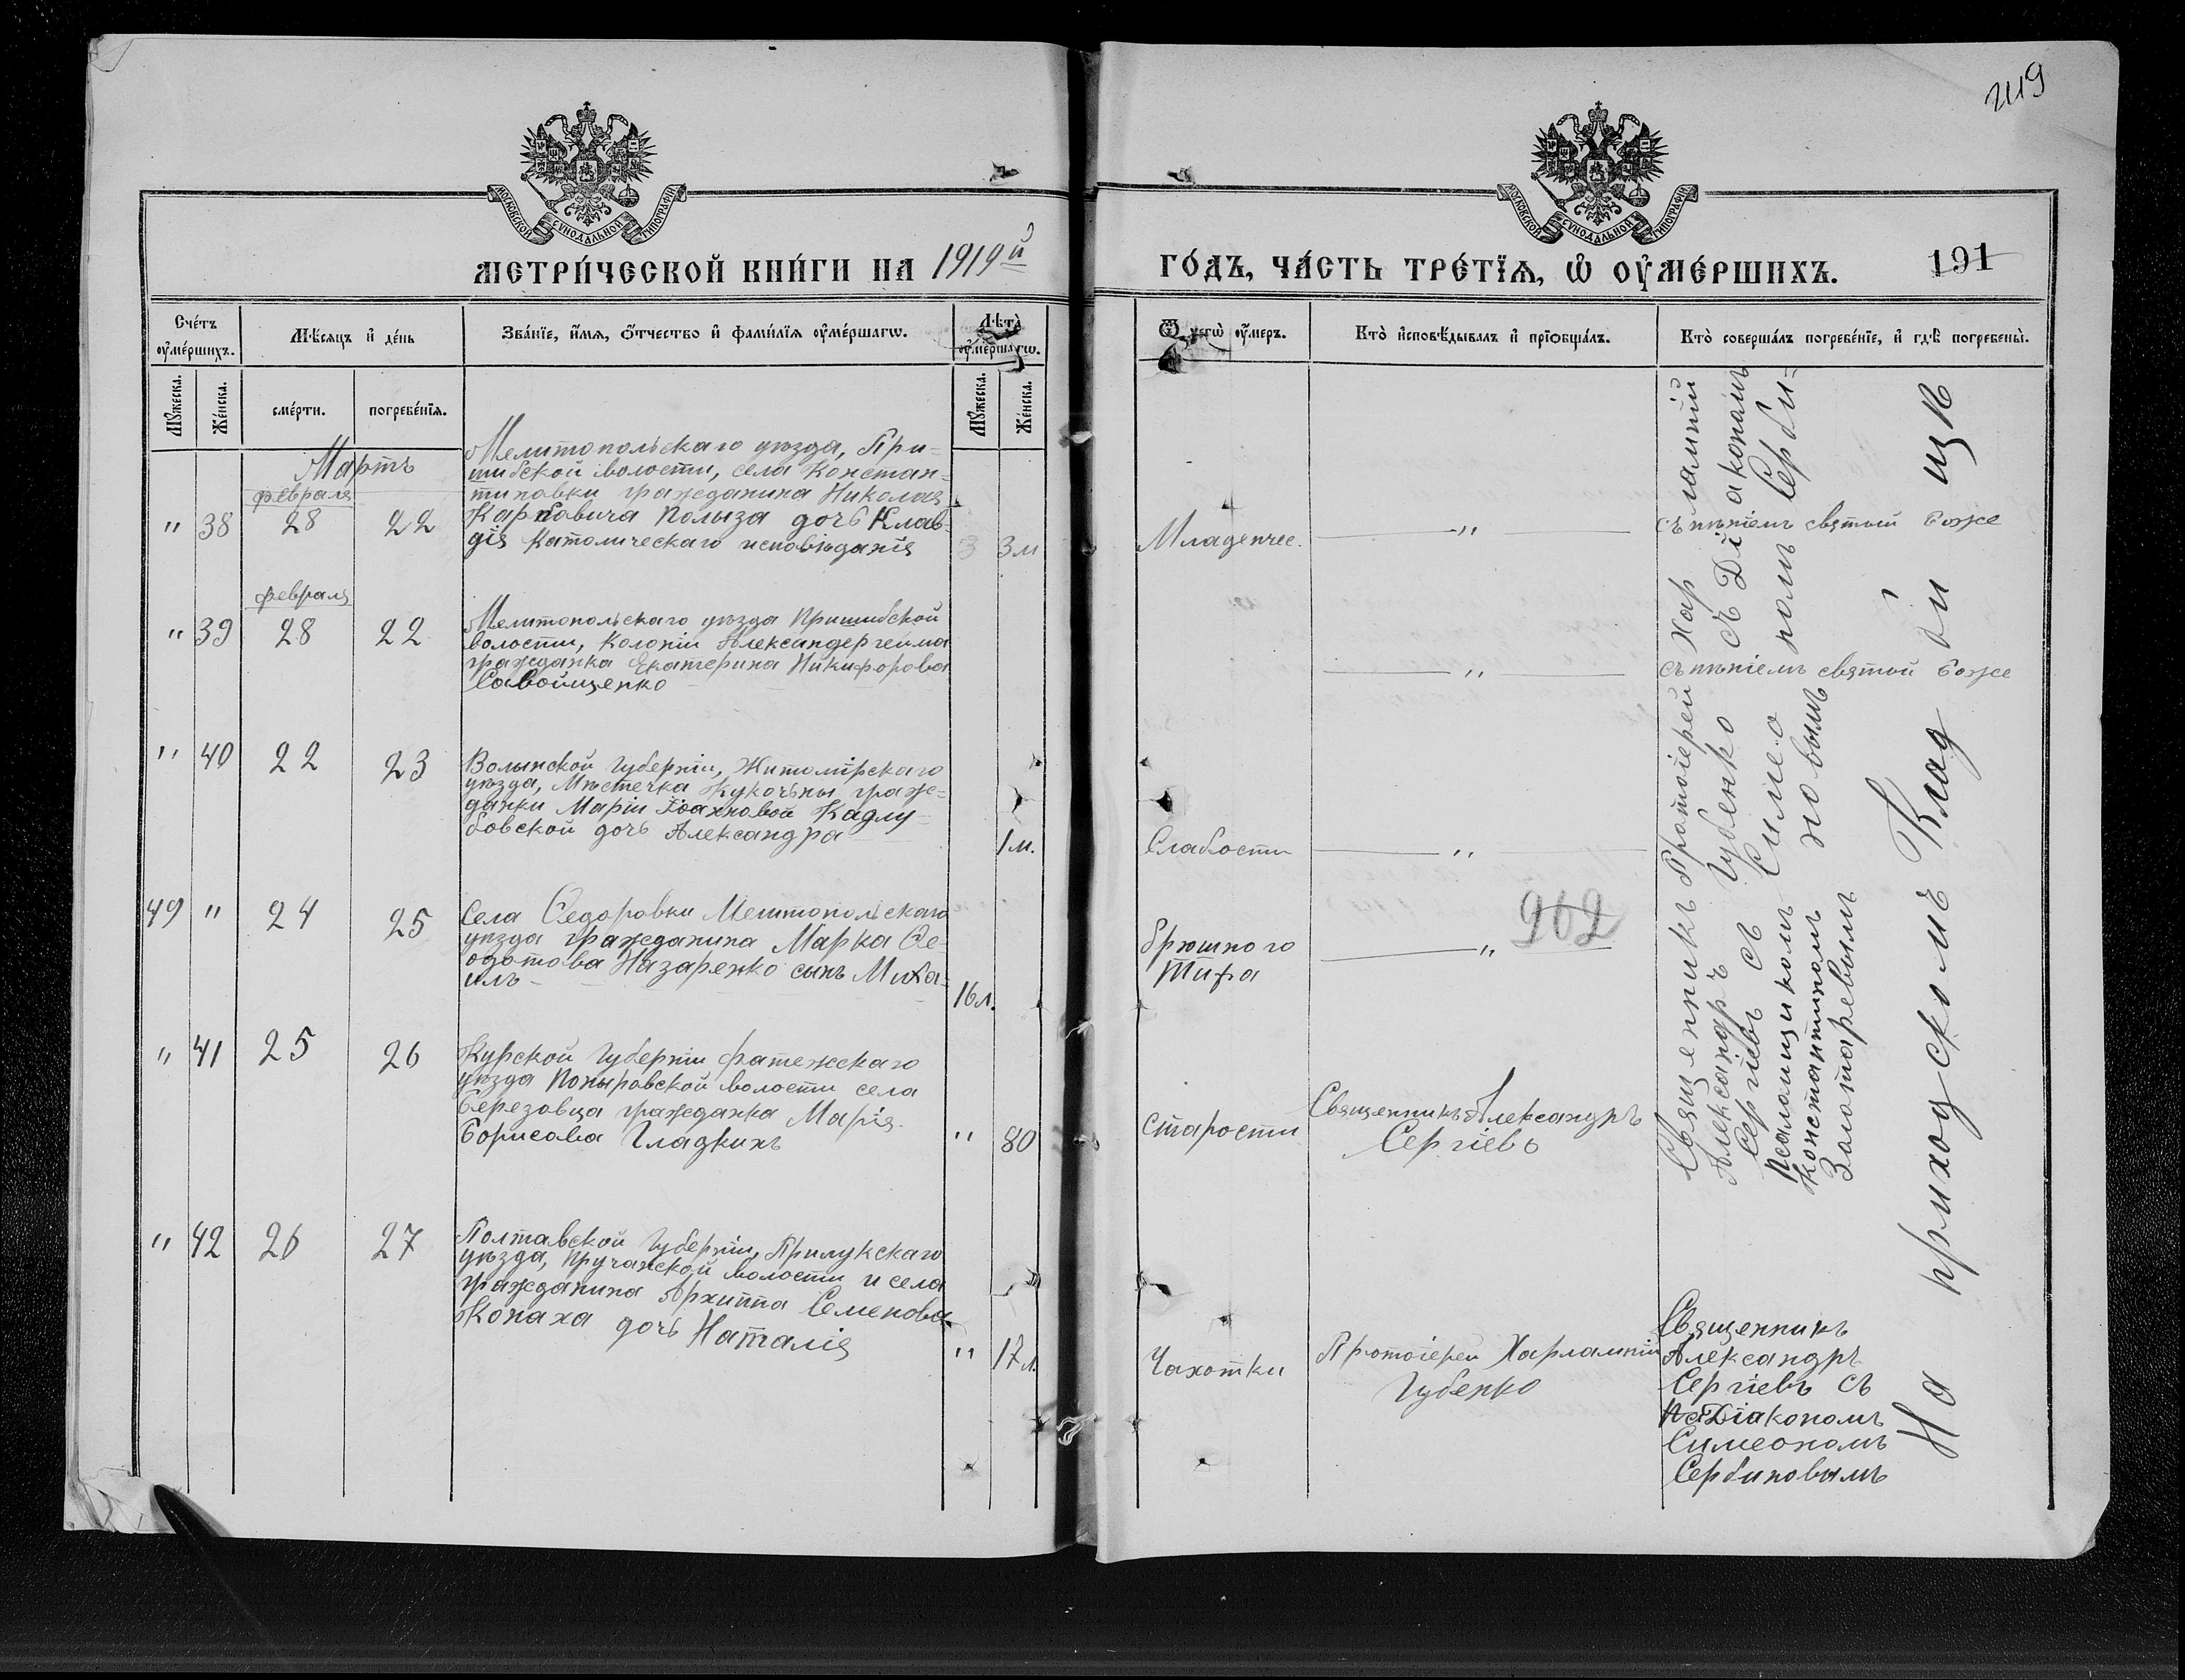 249
МОСКОВСКОЙ СѴНОДАЛЬНОЙ ТИПОГРАФІИ
МОСКОВСКОЙ СѴНОДАЛЬНОЙ ТИПОГРАФІИ
МЕТРИ́ЧЕСКОЙ КНИ́ГИ НА 1919й
ГО́ДЪ, ЧА́СТЬ ТРЕ́ТЇѦ, Ѡ҆ ОУ҆МЕ́РШИХЪ.
191
Сче́тъ оу҆ме́ршихъ.
Мѣ́сѧцъ и҆ де́нь
Зва́нїе, и҆́мѧ, ѻ҆́тчество и҆ фами́лїѧ оу҆ме́ршагѡ.
Лѣ́та̀ оу҆ме́ршагѡ.
Ѿ чегѡ̀ оу҆́меръ.
Кто̀ и҆сповѣ́дывалъ и҆ прїѡбща́лъ.
Кто̀ соверша́лъ погребе́нїе, и҆ гдѣ̀ погребены̀.
Мꙋ́жеска.
Же́нска.
сме́рти.
погребе́нїѧ.
Мꙋ́жеска.
Же́нска.
Мартъ
февраля
" 38 28 22
Мелитопольскаго уѣзда, При=
шибской волости, села Констан=
тиновки гражданина Николая
Карповича Полыза дочь Клав=
дія Католическаго исповѣданія
3 3м
Младенчес.
"
съ пѣніемъ святый Боже
февраля
" 39 28 22
Мелитопольскаго уѣзда Пришибской
волости, Колоніи Александергейма
гражданка Екатерина Никифорова
Савойщенко
"
съ пѣніемъ святой Боже
" 40 22 23
Волынской Губерніи, Житомірскаго
уѣзда, Мѣстечка граж=
данки Маріи Іоанновой Кадлу=
бовской дочь Александра
1м.
Слабости
"
49 " 24 25
Села Ѳедоровки Мелитопольскаго
уѣзда гражданина Марка Ѳе=
одотова Назаренко сынъ Миха=
илъ
16л.
брюшного
тифа
"
202
" 41 25 26
Курской Губерніи Фатежскаго
уѣзда Поныровской волости села
Березовца гражданка Марія
Борисова Гладкихъ
" 80
старости
Священникъ Александръ
Сергіевъ
" 42 26 27
Полтавской Губерніи, Прилукскаго
уѣзда, волости и села
гражданина Архиппа Семенова
Конаха дочь Наталія
" 17л.
Чахотки
Протоіерей Харлампій
Губенко
Священникъ
Александръ
Сергіевъ съ
Діакономъ
Симеономъ
Сербиновымъ
Священникъ Протоіерей Харлампій
Александръ Губенко съ Діакономъ
Сергіевъ съ Симеономъ Серби=
Псаломщикомъ новымъ
Константиномъ
Золотаревымъ
На приходскомъ Кладбищѣ